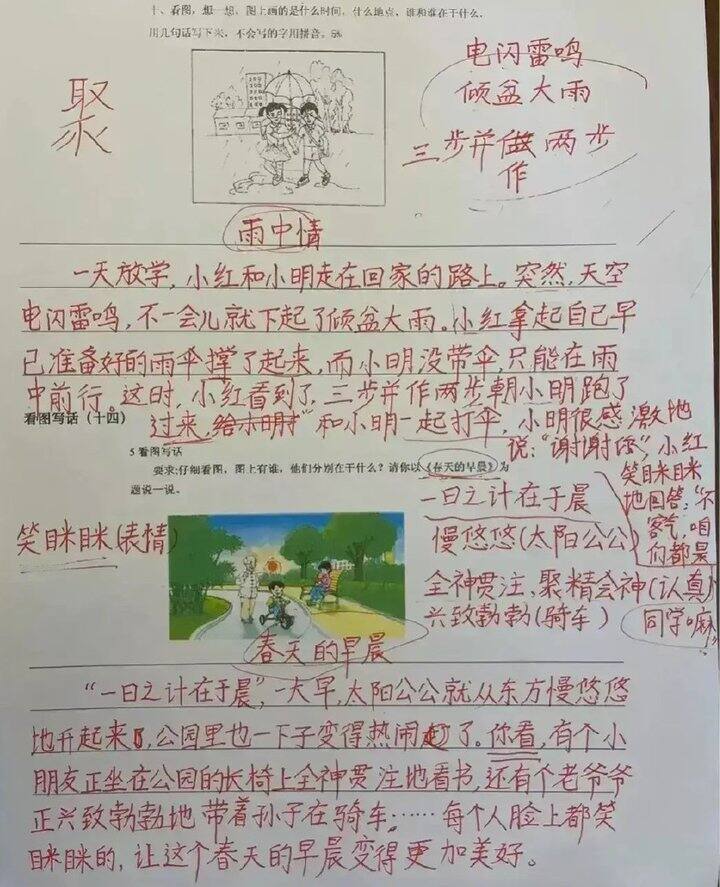 十、看图，想一想，图上画的是什么时间，什么地点，谁和谁在干什么，
用几句话写下来，不会写的字用拼音。
聚
电闪雷鸣
倾盆大雨
三步并做两步
作
雨中情
一天放学，小红和小明走在回家的路上。突然，天空
电闪雷鸣，不一会儿就下起了倾盆大雨。小红拿起自己早
已准备好的雨伞撑了起来，而小明没带伞，只能在雨
中前行。这时，小红看到了，三步并作两步朝小明跑了
过来，给小明 和小明一起打伞，小明很感激地
说：“谢谢你”，小红
笑眯眯
地回答：“不
客气，咱
们都是
同学嘛
看图写话（十四）
5 看图写话
要求:仔细看图，图上有谁，他们分别在干什么？请你以《春天的早晨》为
题说一说。
一日之计在于晨
笑眯眯(表情)
慢悠悠(太阳公公)
全神贯注、聚精会神(认真)
兴致勃勃(骑车)
春天的早晨
“一日之计在于晨”，一大早，太阳公公就从东方慢悠悠
地升起来了，公园里也一下子变得热闹起了。你看，有个小
朋友正坐在公园的长椅上全神贯注地看书，还有个老爷爷
正兴致勃勃地带着孙子在骑车……每个人脸上都笑
眯眯的，让这个春天的早晨变得更加美好。